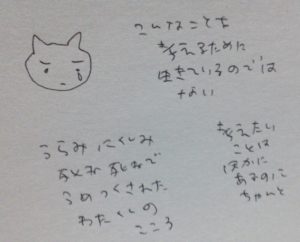 こんなことを
考えるために
生きているのでは
ない
考えたい
ことは
ほかに
あるのに
ちゃんと
うらみ にくしみ
うめつくされた
わたくしの
こころ